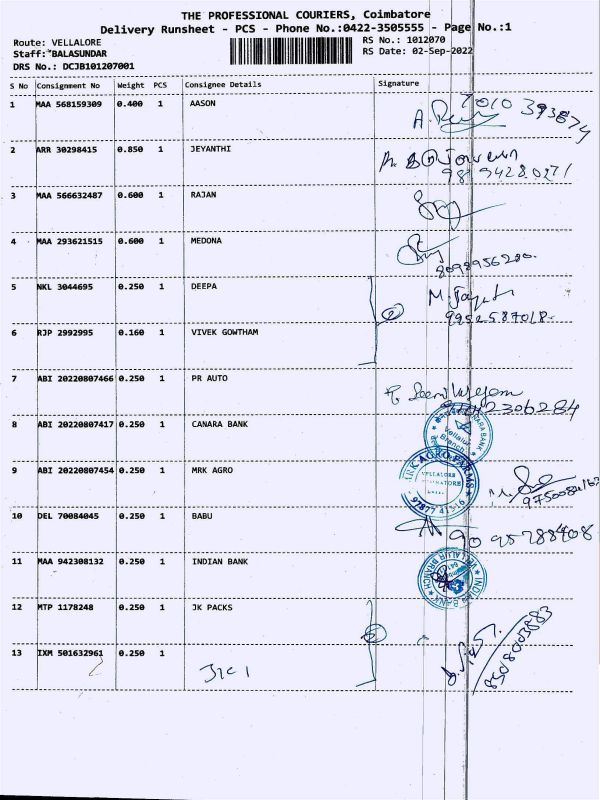 THE PROFESSIONAL COURIERS, Coimbatore
Delivery Runsheet - PCS - Phone No.:0422-3505555 - Page No.:1
Route: VELLALORE RS No.: 1012070
Staff: BALASUNDAR RS Date: 02-Sep-2022
DRS No.: DCJB101207001
S No Consignment No Weight PCS Consignee Details Signature
1 MAA 568159309 0.400 1 AASON
2 ARR 30298415 0.850 1 JEYANTHI
3 MAA 566632487 0.600 1 RAJAN
4 MAA 293621515 0.600 1 MEDONA
8098956200
5 NKL 3044695 0.250 1 DEEPA
9952587018
6 RJP 2992995 0.160 1 VIVEK GOWTHAM
7 ABI 20220807466 0.250 1 PR AUTO
8 ABI 20220807417 0.250 1 CANARA BANK
CANARA BANK Vellalur Branch
9 ABI 20220807454 0.250 1 MRK AGRO
MRK AGRO FARMS VELLALORE COIMBATORE
10 DEL 70084045 0.250 1 BABU
11 MAA 942308132 0.250 1 INDIAN BANK
INDIAN BANK VELLALUR BRANCH
12 MTP 1178248 0.250 1 JK PACKS
13 IXM 501632961 0.250 1